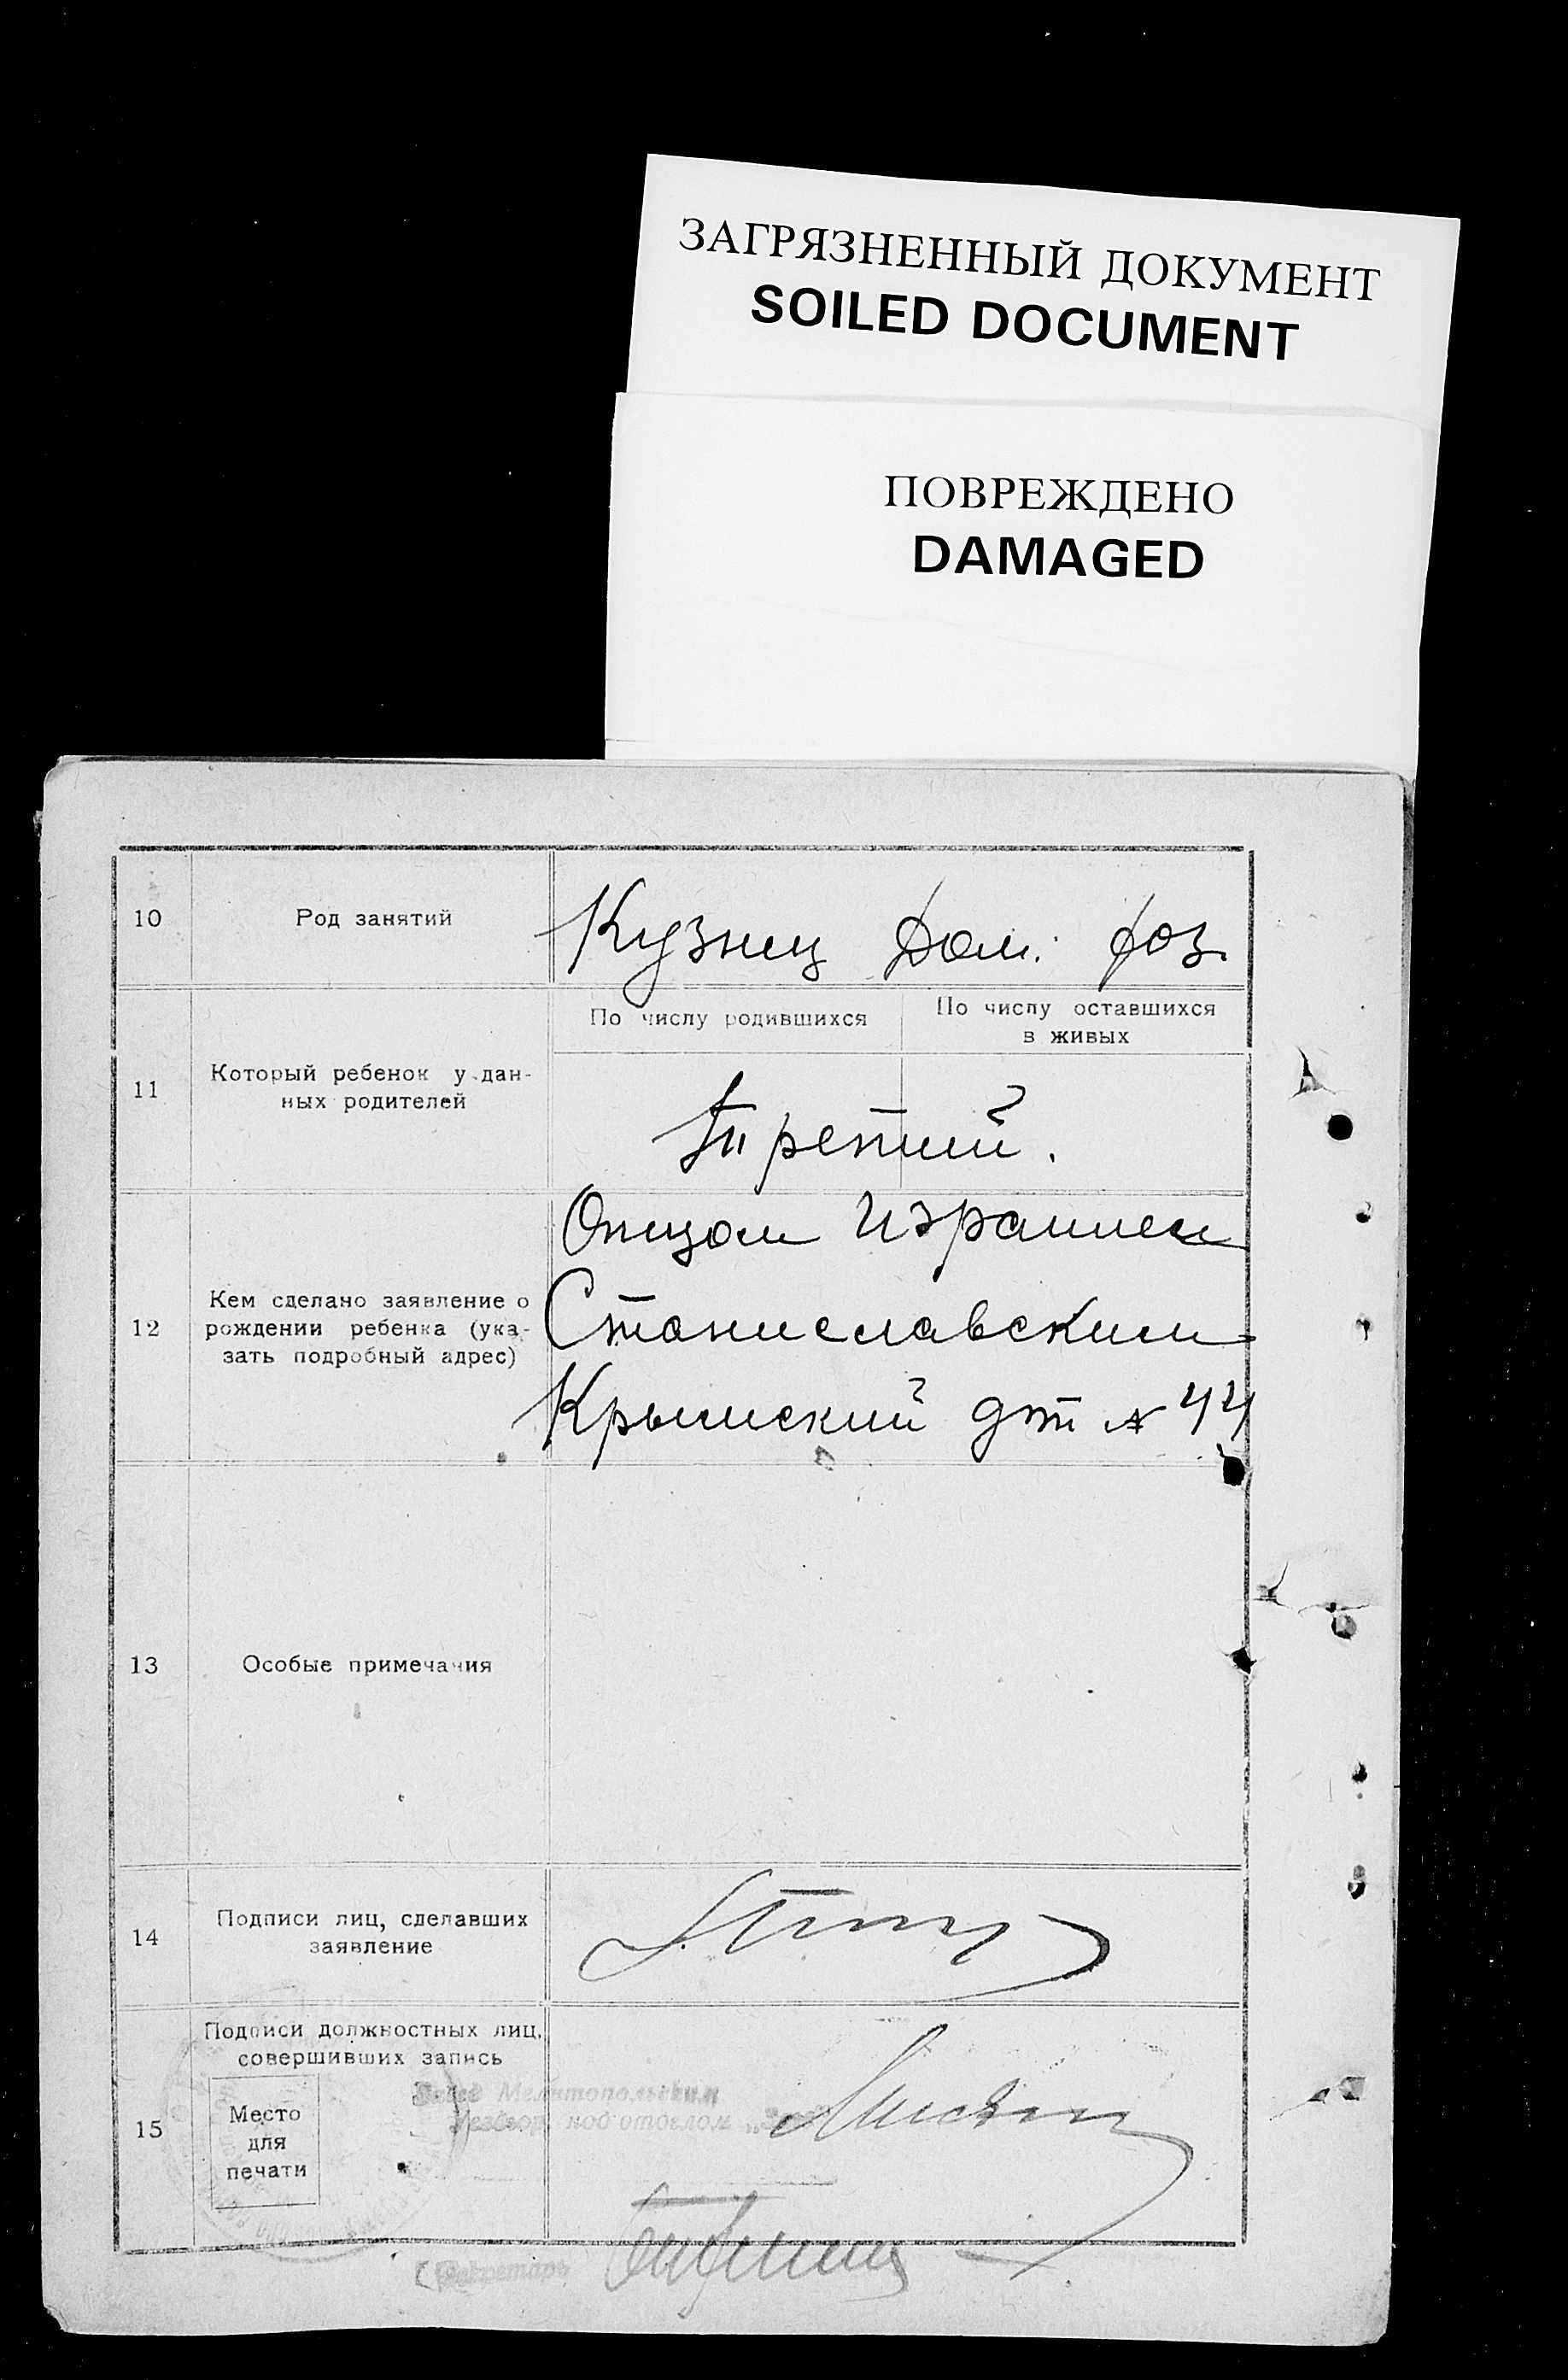 ЗАГРЯЗНЕННЫЙ ДОКУМЕНТ
SOILED DOCUMENT
ПОВРЕЖДЕНО
DAMAGED
10 Род занятий Кузнец Дом. хоз.
По числу родившихся По числу оставшихся
в живых
11 Который ребенок у дан-
ных родителей
Третий.
12 Кем сделано заявление о
рождении ребенка (ука-
зать подробный адрес)
Отцом Израилем
Станиславским
Крымский № 44
13 Особые примечания
14 Подписи лиц, сделавших
заявление
15 Подписи должностных лиц,
совершивших запись
Место
для
печати
Мелитопольским
под отделом
Секретарь